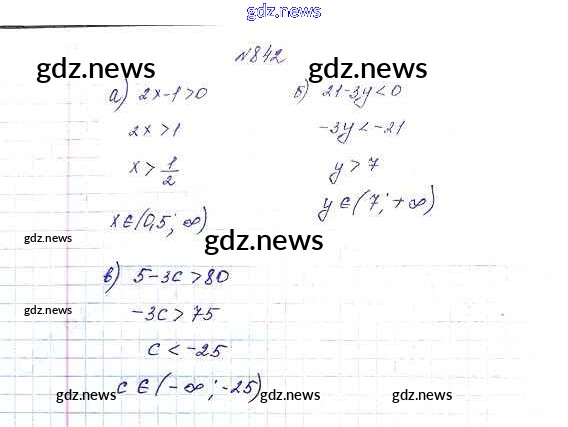 gdz.news
№842
gdz.news gdz.news
а) 2x-1>0 б) 21-3y<0
2x>1 -3y<-21
x>1/2 y>7
x∈(0,5; ∞) y∈(7; +∞)
gdz.news
gdz.news
в) 5-3c>80
-3c>75
gdz.news gdz.news
c<-25
c∈(-∞; -25)
gdz.news gdz.news gdz.news gdz.news